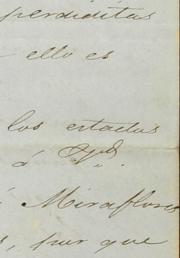 perdiditas
- ello es
los estados
á Vd.
Miraflores
, pur que